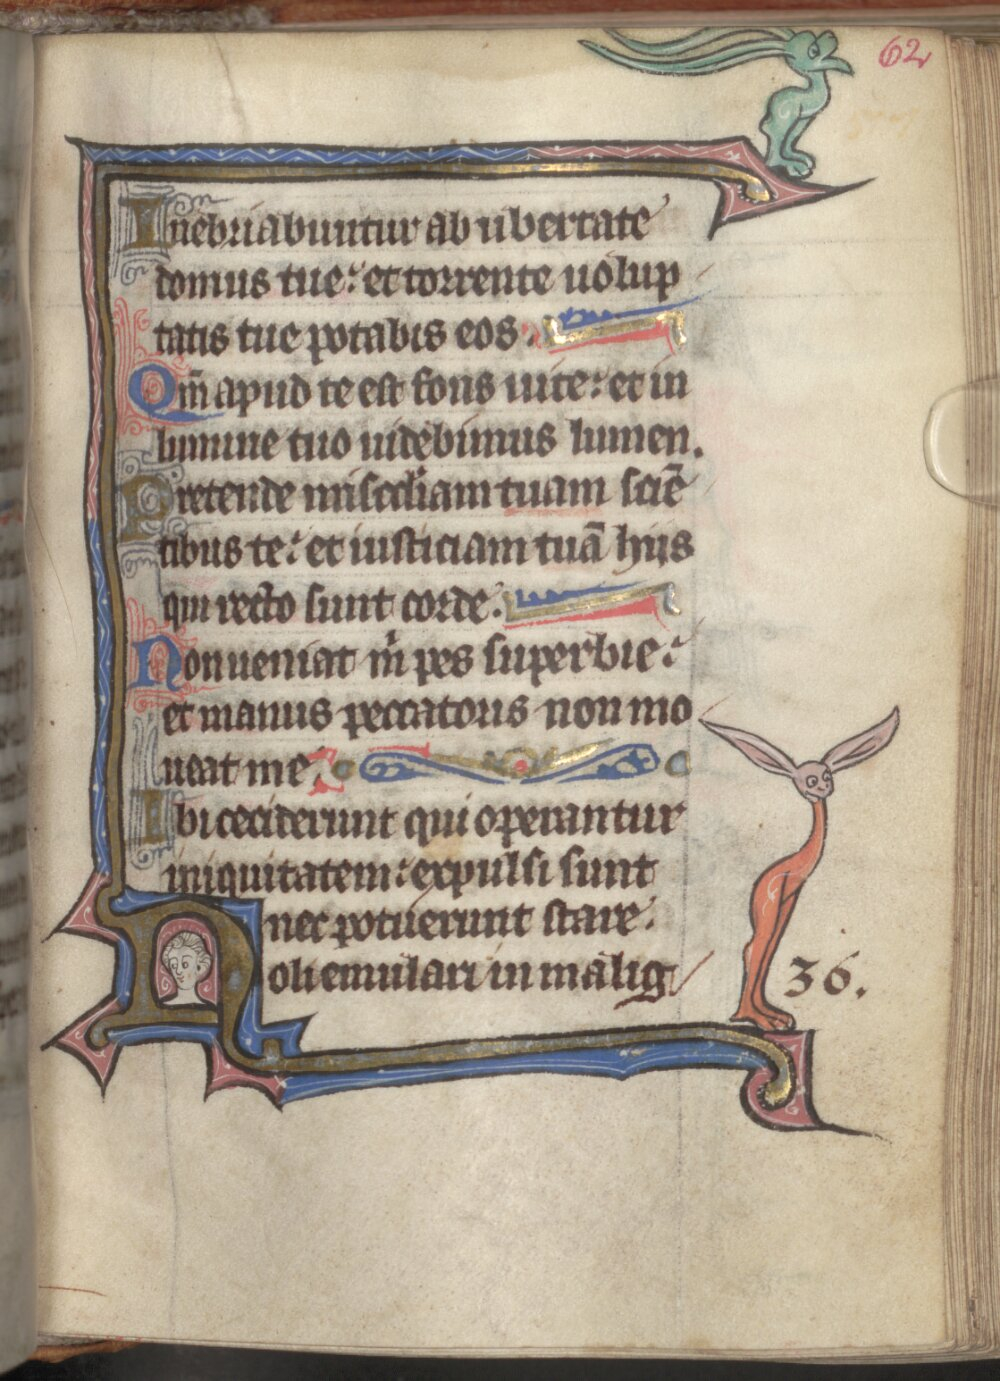 62
Inebriabuntur ab ubertate
domus tue: et torrente uolup
tatis tue potabis eos.
Qm̄ apud te est fons uite: et in
lumine tuo uidebimus lumen.
Pretende misc̄diam tuam sciē
tibus te: et iusticiam tuā hiis
qui recto sunt corde.
Non ueniat m̄ pes superbie:
et manus peccatoris non mo
ueat me.
Ibi ceciderunt qui operantur
iniquitatem: expulsi sunt
nec potuerunt stare.
Noli emulari in malig
36.